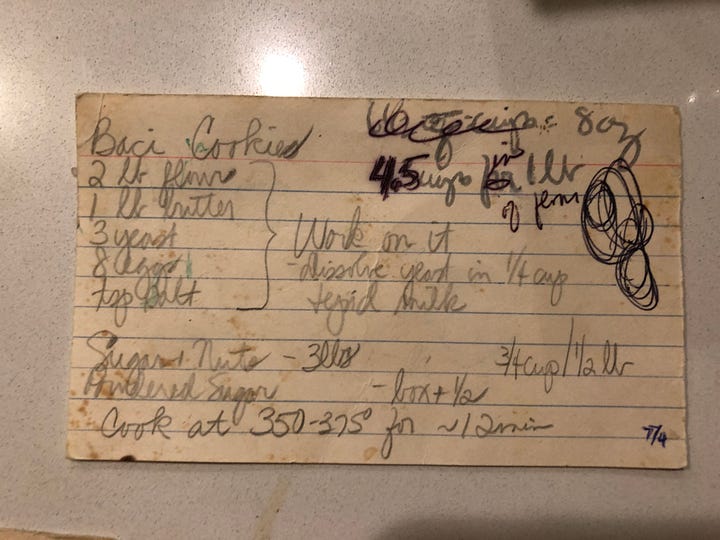 Baci Cookies
= 8oz
4.5 cups in 1 lb
2 lb flour
1 lb butter
3 yeast
8 eggs
tsp salt
Work on it
- dissolve yeast in 1/4 cup
tepid milk
Sugar + Nuts - 3lbs 3/4 cup / 1/2 lb
Powdered Sugar - box + 1/2
Cook at 350-375° for ~12 min